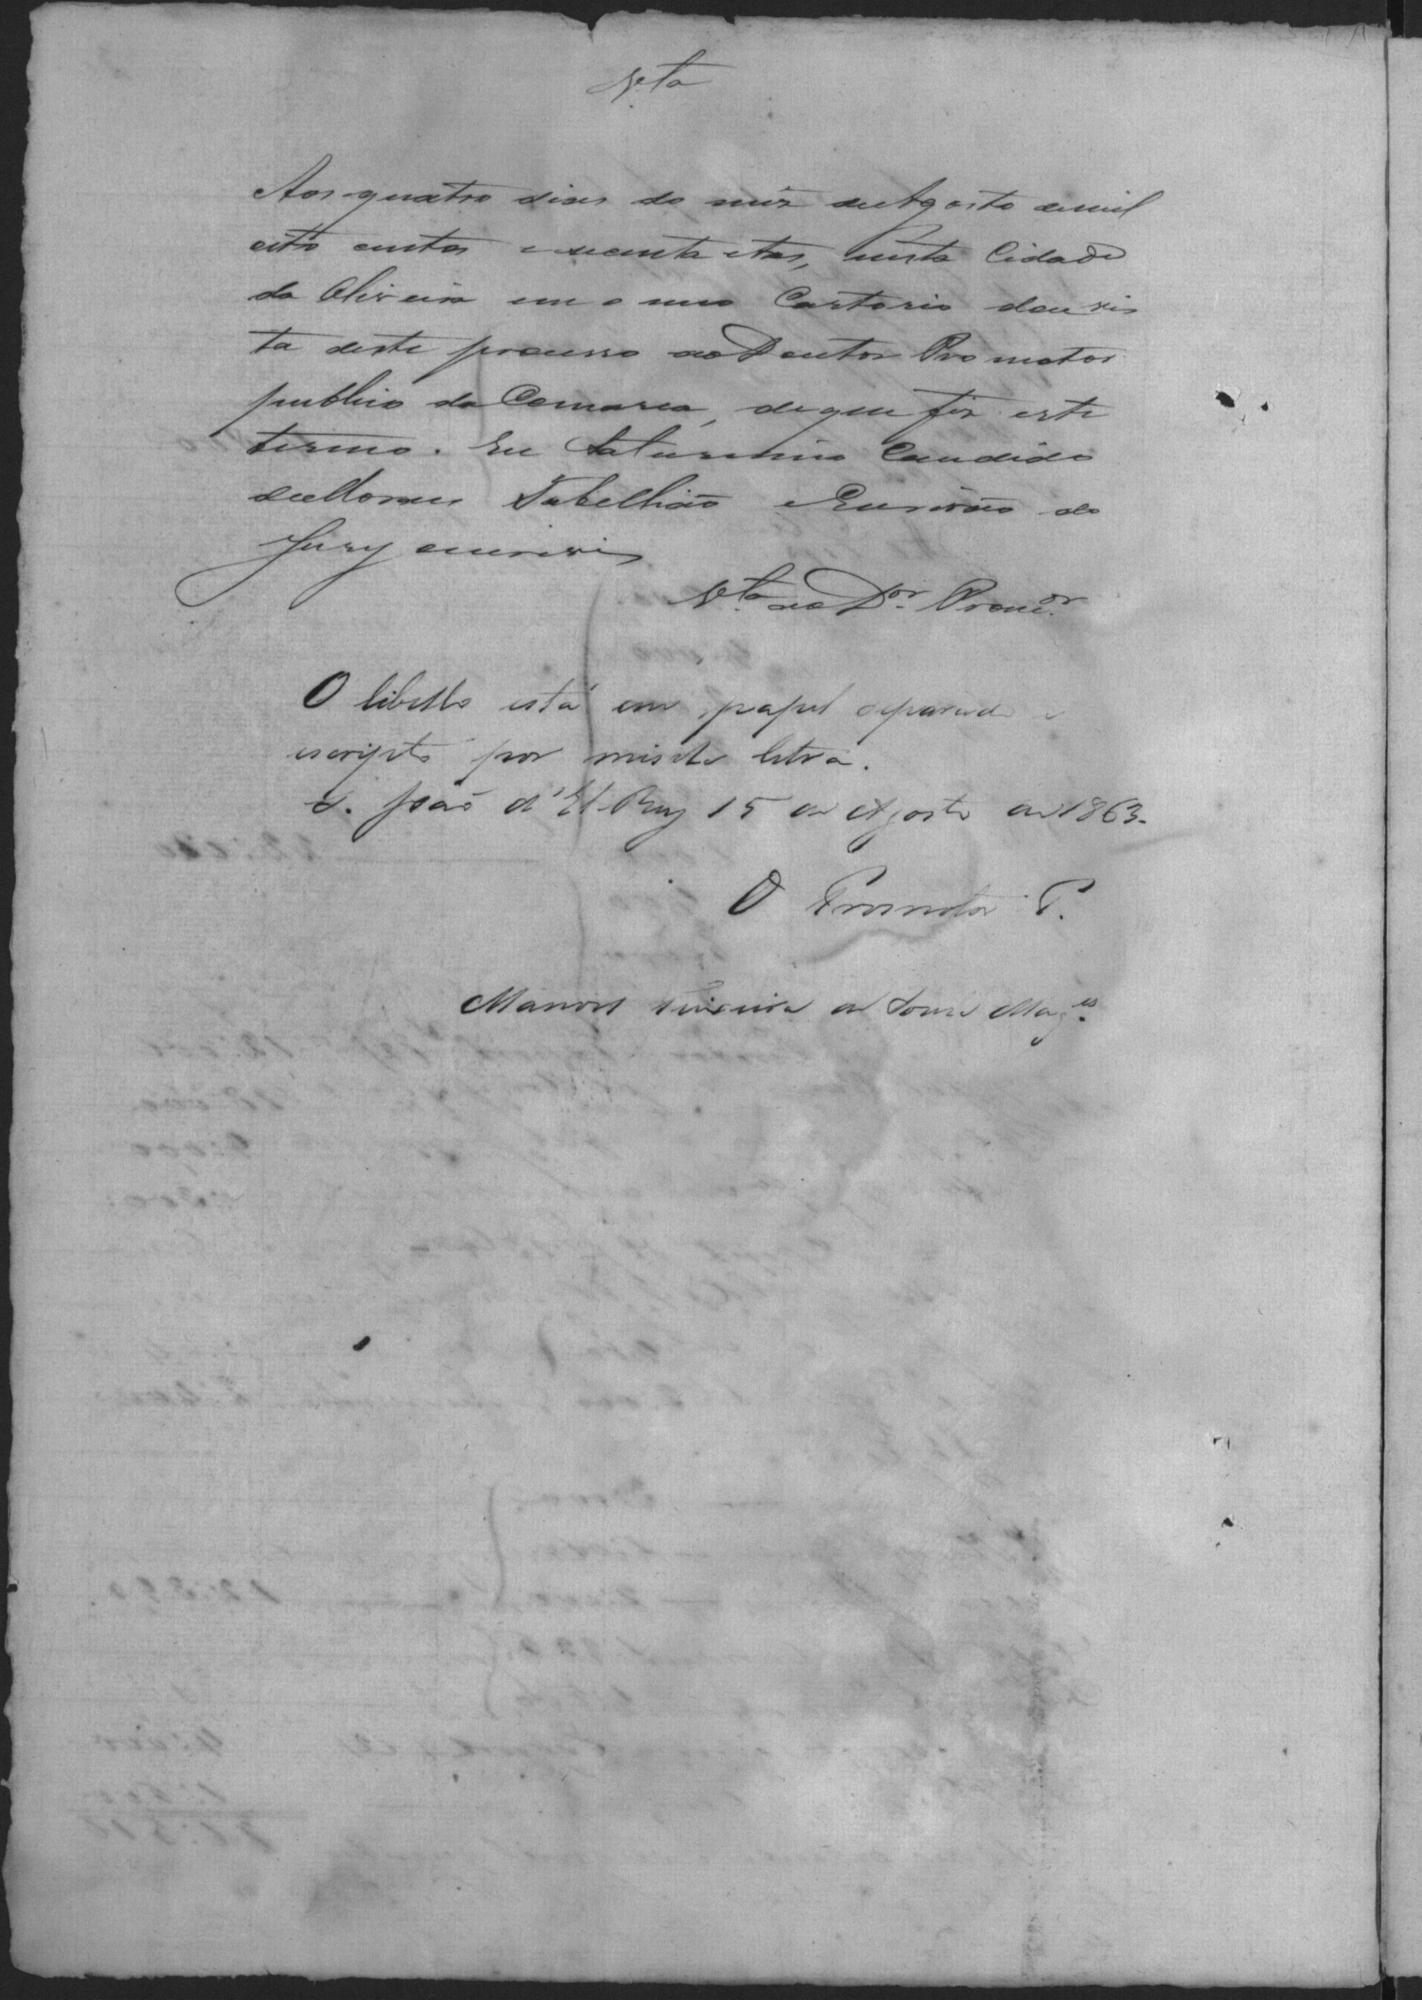 V.ta
Aos quatro dias do mez de Agosto de mil
oito centos e secenta e tres, nesta Cidade
da Oliveira em o meo Cartorio dou vis
ta deste processo ao Doutor Promotor
publico da Comarca, de que fiz este
termo. Eu Saturnino Candido
de Moraes Tabelliaõ e Escrivão do
Jury escrivi
V.ta ao D.or Prom.or
O libello está em papel separado e
escripto por minha letra.
S. João d'El-Rey 15 de Agosto de 1863.
O Promotor P.
Manoel Teixeira de Souza Mag.es